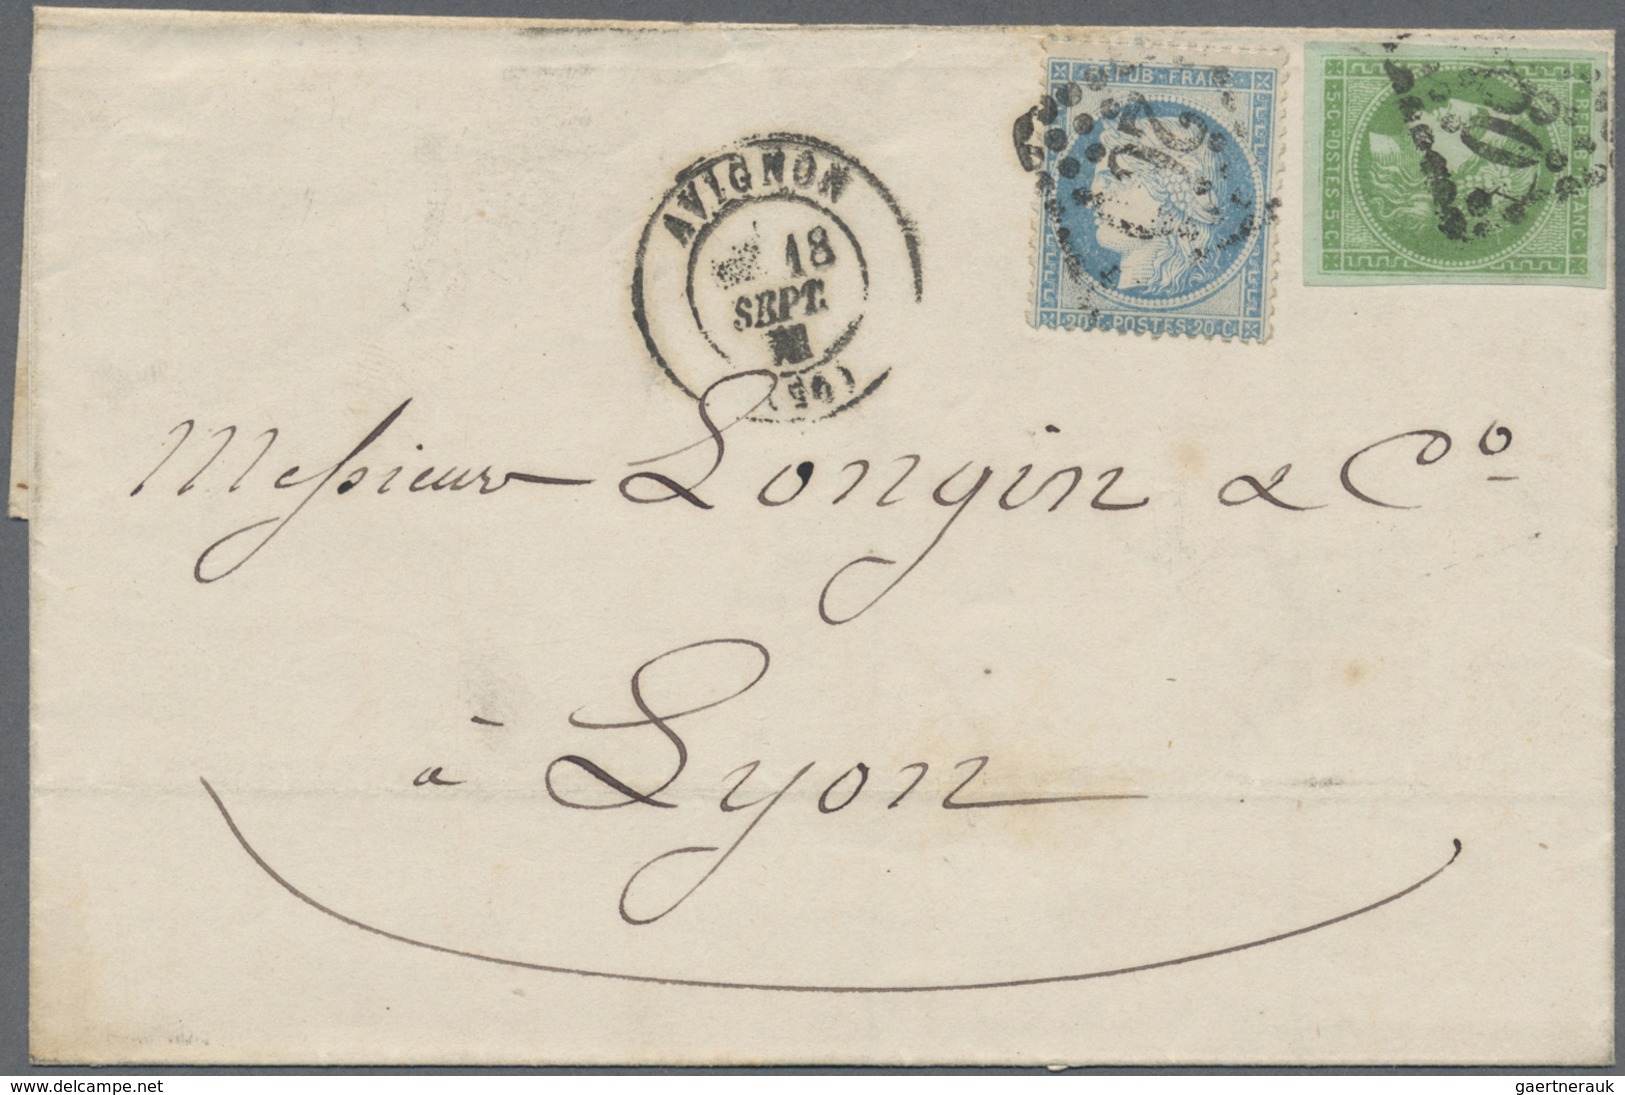 REPUB·FRANC
20·C·POSTES·20·C
REPUB·FRANC
5·C·POSTES·5·C
AVIGNON
18
SEPT.
Messieurs Longin & Cº
à Lyon
www.delcampe.net
gaertnerauk